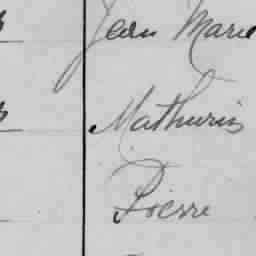 Jean Marie
Mathurin
Pierre